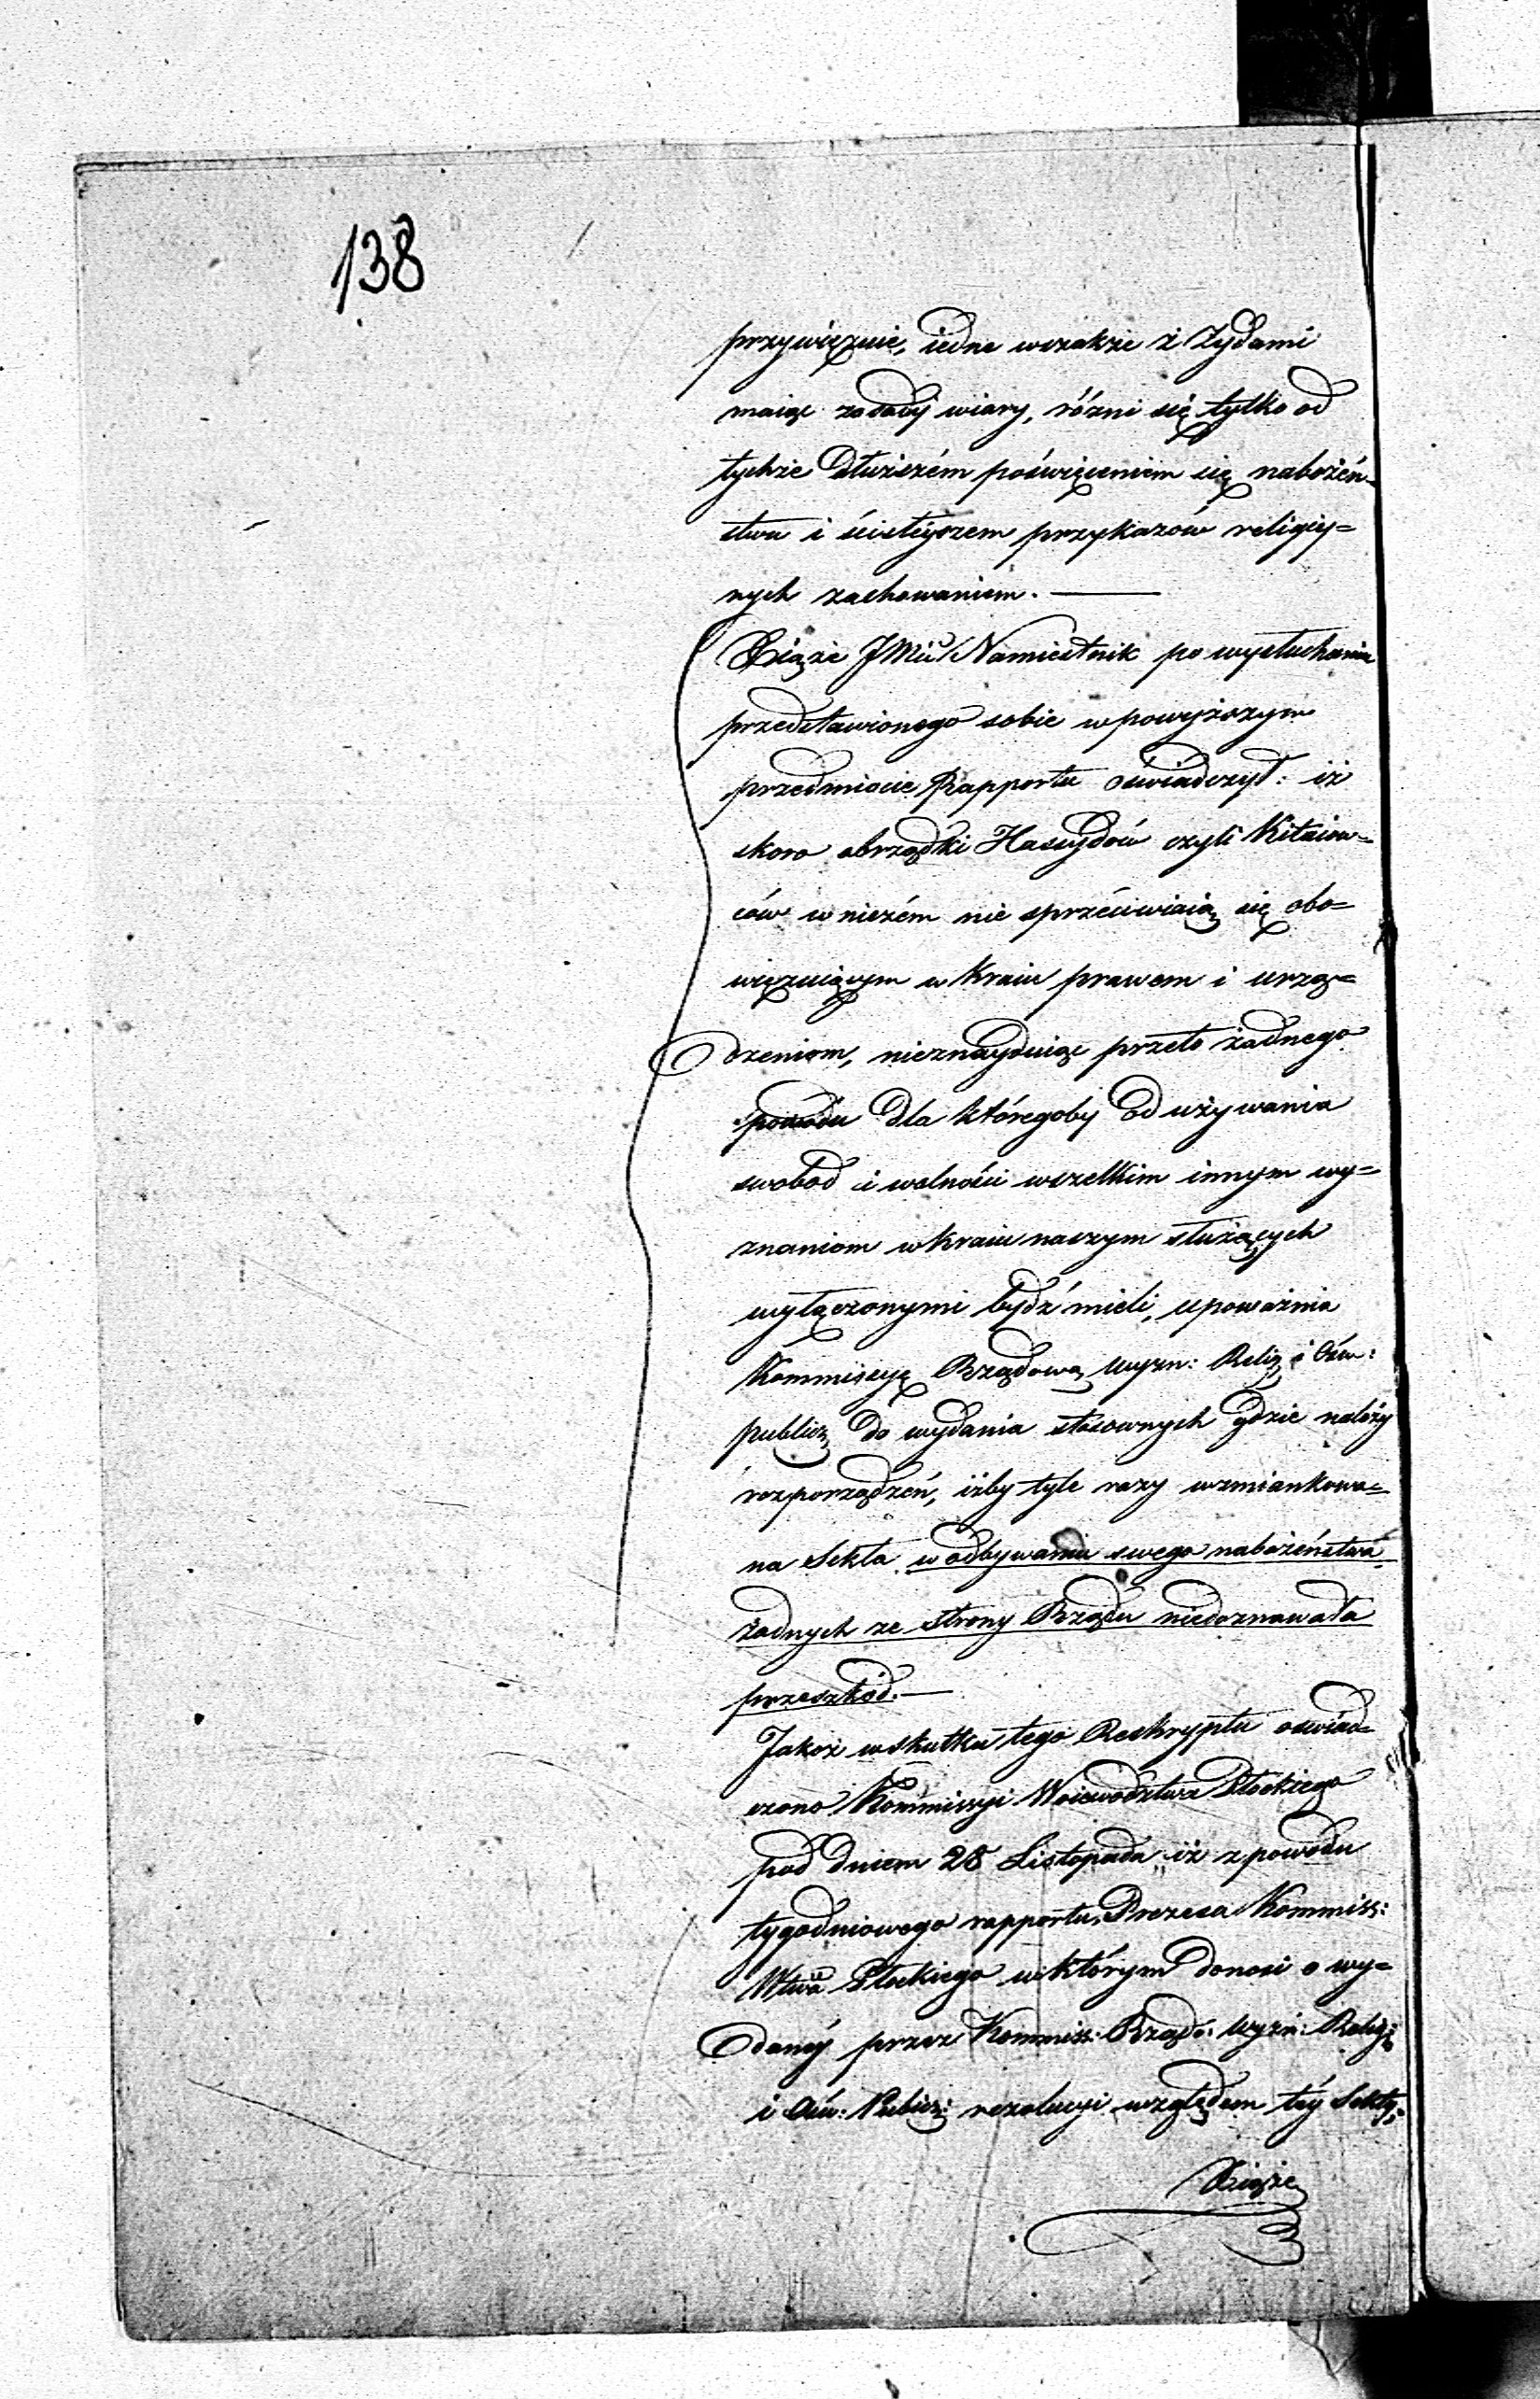 138
przywięzuie, iedne wszakże z Żydami
maiąc zasady wiary, różni się tylko od
tychże dłuższém poświęceniem się nabożeń-
stwu i ściśleyszem przykazów religiy=
nych zachowaniem. —
Xiąże JMść Namiestnik po wysłuchaniu
przedstawionego sobie w powyższym
przedmiocie Rapportu oświadczył: iż
skoro obrządki Hassydów czyli Kitaiow=
ców w niczém nie sprzéciwiaią się obo=
więzuiącym w Kraiu prawom i urzą=
dzeniom, nieznayduiąc przeto żadnego
powodu dla któregoby od używania
swobód i wolności wszelkim innym wy=
znaniom w kraiu naszym służących
wyłączonymi bydź mieli, upoważnia
Kommissyę Rządową Wyzn: Relig: i Ośw:
publicz: do wydania stosownych gdzie należy
rozporządzeń, iżby tyle razy wzmiankowa=
na Sekta w odbywaniu swego nabożeństwa
żadnych ze strony Rządu niedoznawała
przeszkód. —
Jakoż w skutku tego Reskryptu oświad=
czono Kommissyi Woiewództwa Płockiego
pod dniem 28 Listopada iż z powodu
tygodniowego rapportu Prezesa Kommiss:
Wtwa Płockiego w którym donosi o wy=
danéy przez Kommiss: Rządo: Wyzn: Relig:
i Ośw: Publicz: rezolucyi względem téy Sekty,
Xiąże